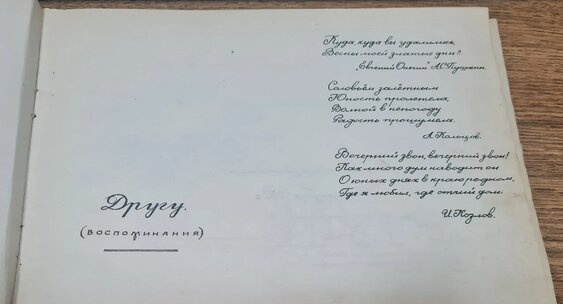 Куда, куда вы удалились,
Весны моей златые дни?
"Евгений Онегин" А.С.Пушкин.
Соловьём залётным
Юность пролетела,
Волной в непогоду
Радость прошумела.
А.Кольцов.
Вечерний звон, вечерний звон!
Как много дум наводит он
О юных днях в краю родном,
Где я любил, где отчий дом.
И.Козлов.
Другу.
(воспоминания)